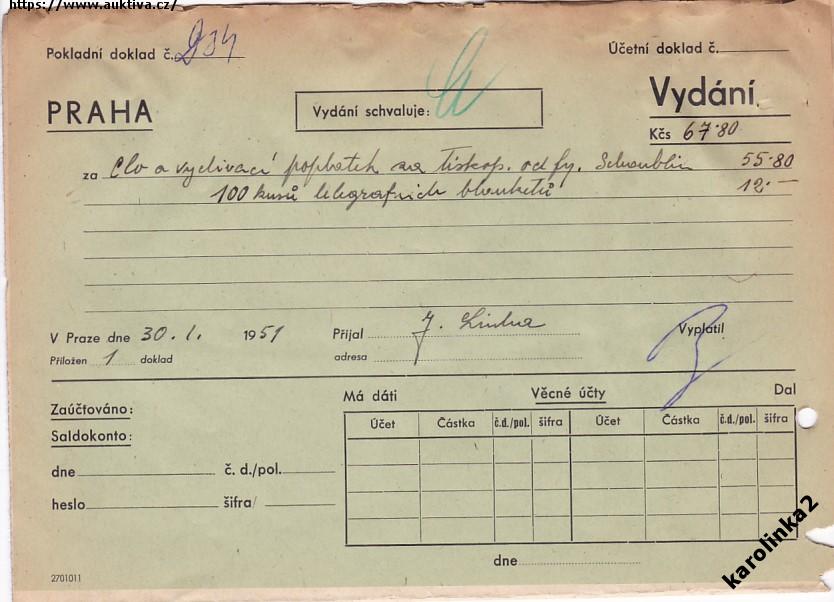 https://www.auktiva.cz/
Pokladní doklad č. 934
Účetní doklad č.
PRAHA
Vydání schvaluje:
Vydání
Kčs 67·80
za Clo a vyclívací poplatek na tiskop. od fy. Schaublin 55·80
100 kusů telegrafních blanketů 12.—
V Praze dne 30. I. 1951
Přijal J.
Vyplatil
Přiložen 1 doklad
adresa
Má dáti
Věcné účty
Dal
Zaúčtováno:
Saldokonto:
Účet Částka č.d./pol. šifra Účet Částka č.d./pol. šifra
dne č. d./pol.
heslo šifra
dne
2701011
karolinka2